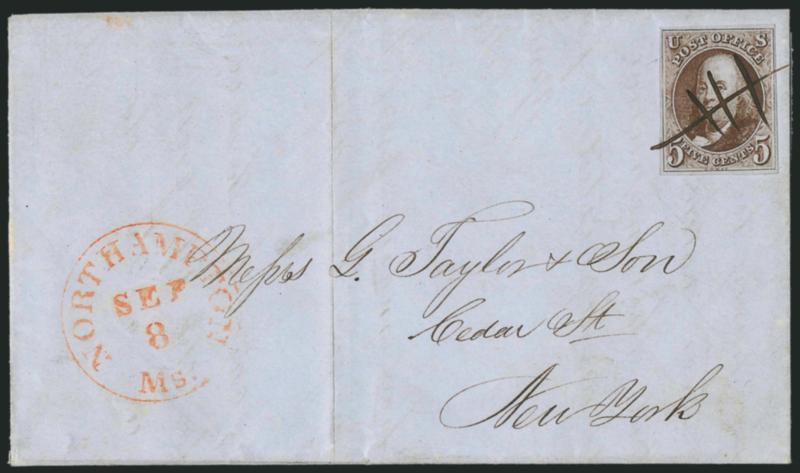 U S
POST OFFICE
5 FIVE CENTS 5
NORTHAMPTON
SEP
8
Ms.
Messrs G. Taylor & Son
Cedar St
New York